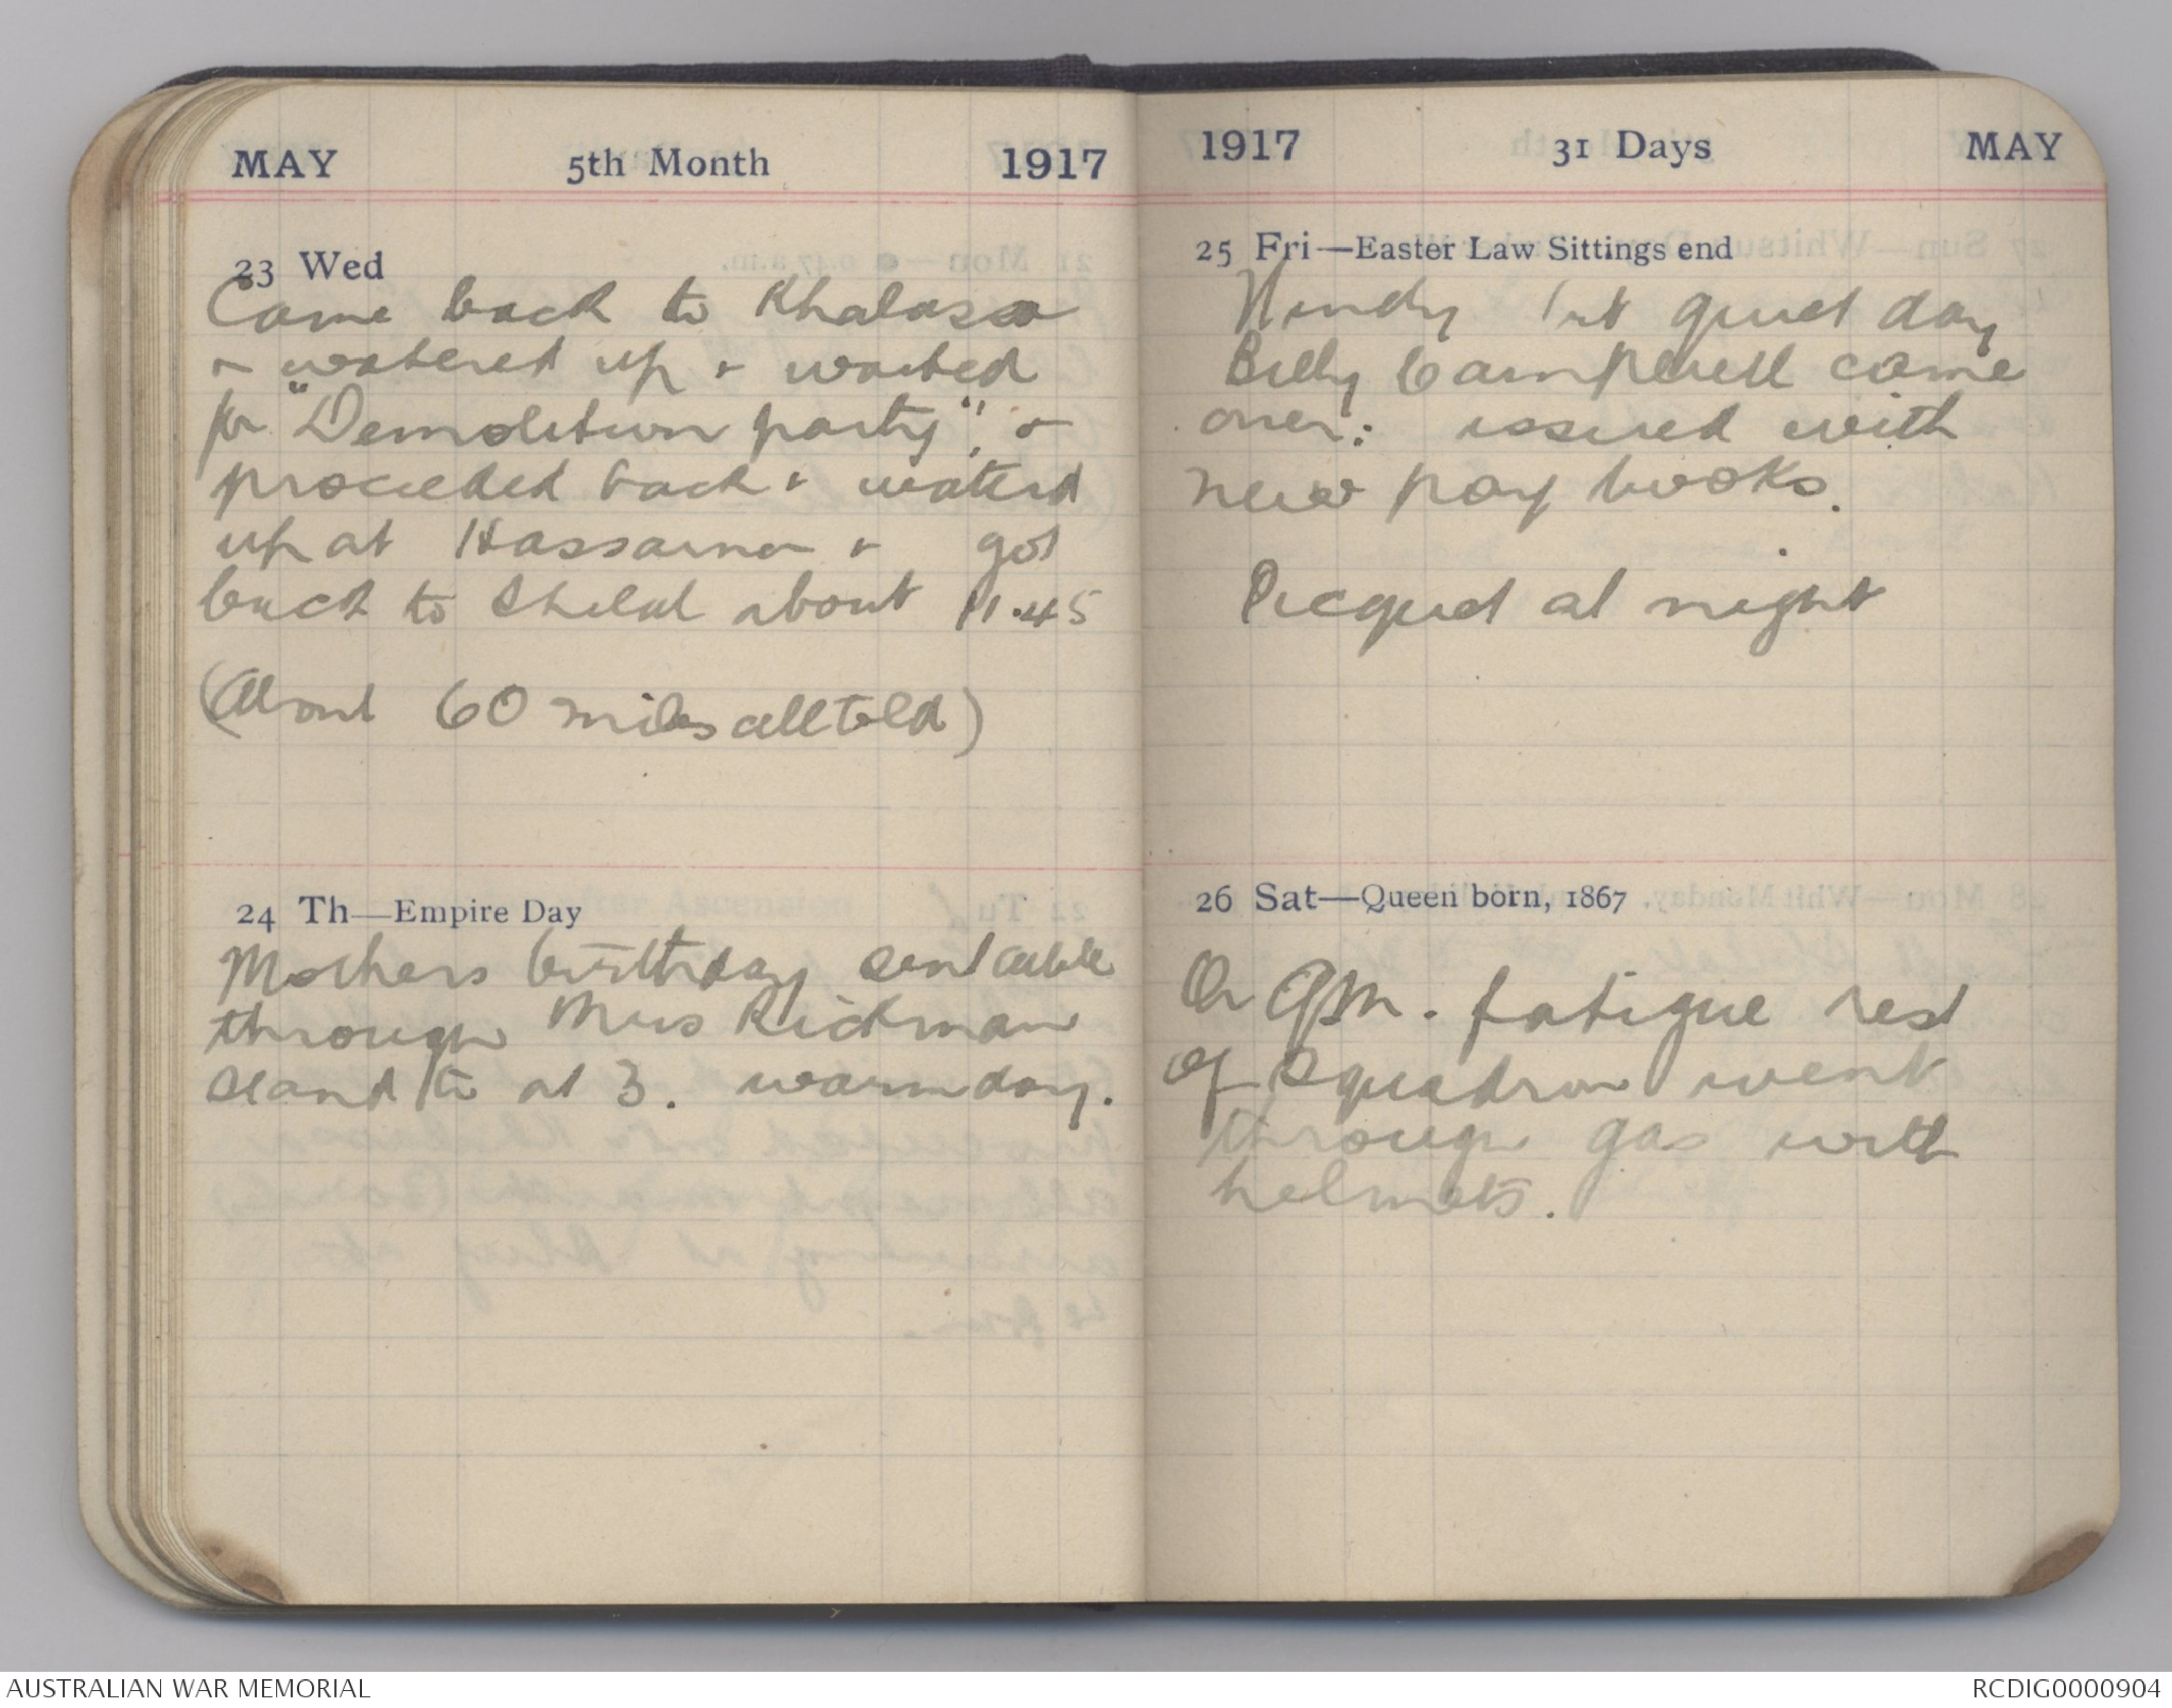 MAY 5th Month 1917
23 Wed
Came back to Khalassa
& watered up & waited
for "Demolition party", &
proceeded back & waterd
up at Hassaina & got
back to Shelal about 11.45
(About 60 miles all told)
24 Th—Empire Day
Mothers birthday sent cable
through Mrs Rickman
stand to at 3. warm day.
1917 31 Days MAY
25 Fri—Easter Law Sittings end
Windy but quiet day
Billy Campbell came
over: issued with
new pay books.
Picquet at night
26 Sat—Queen born, 1867
On QM. fatigue rest
of Squadron went
through gas with
helmets.
AUSTRALIAN WAR MEMORIAL
RCDIG0000904